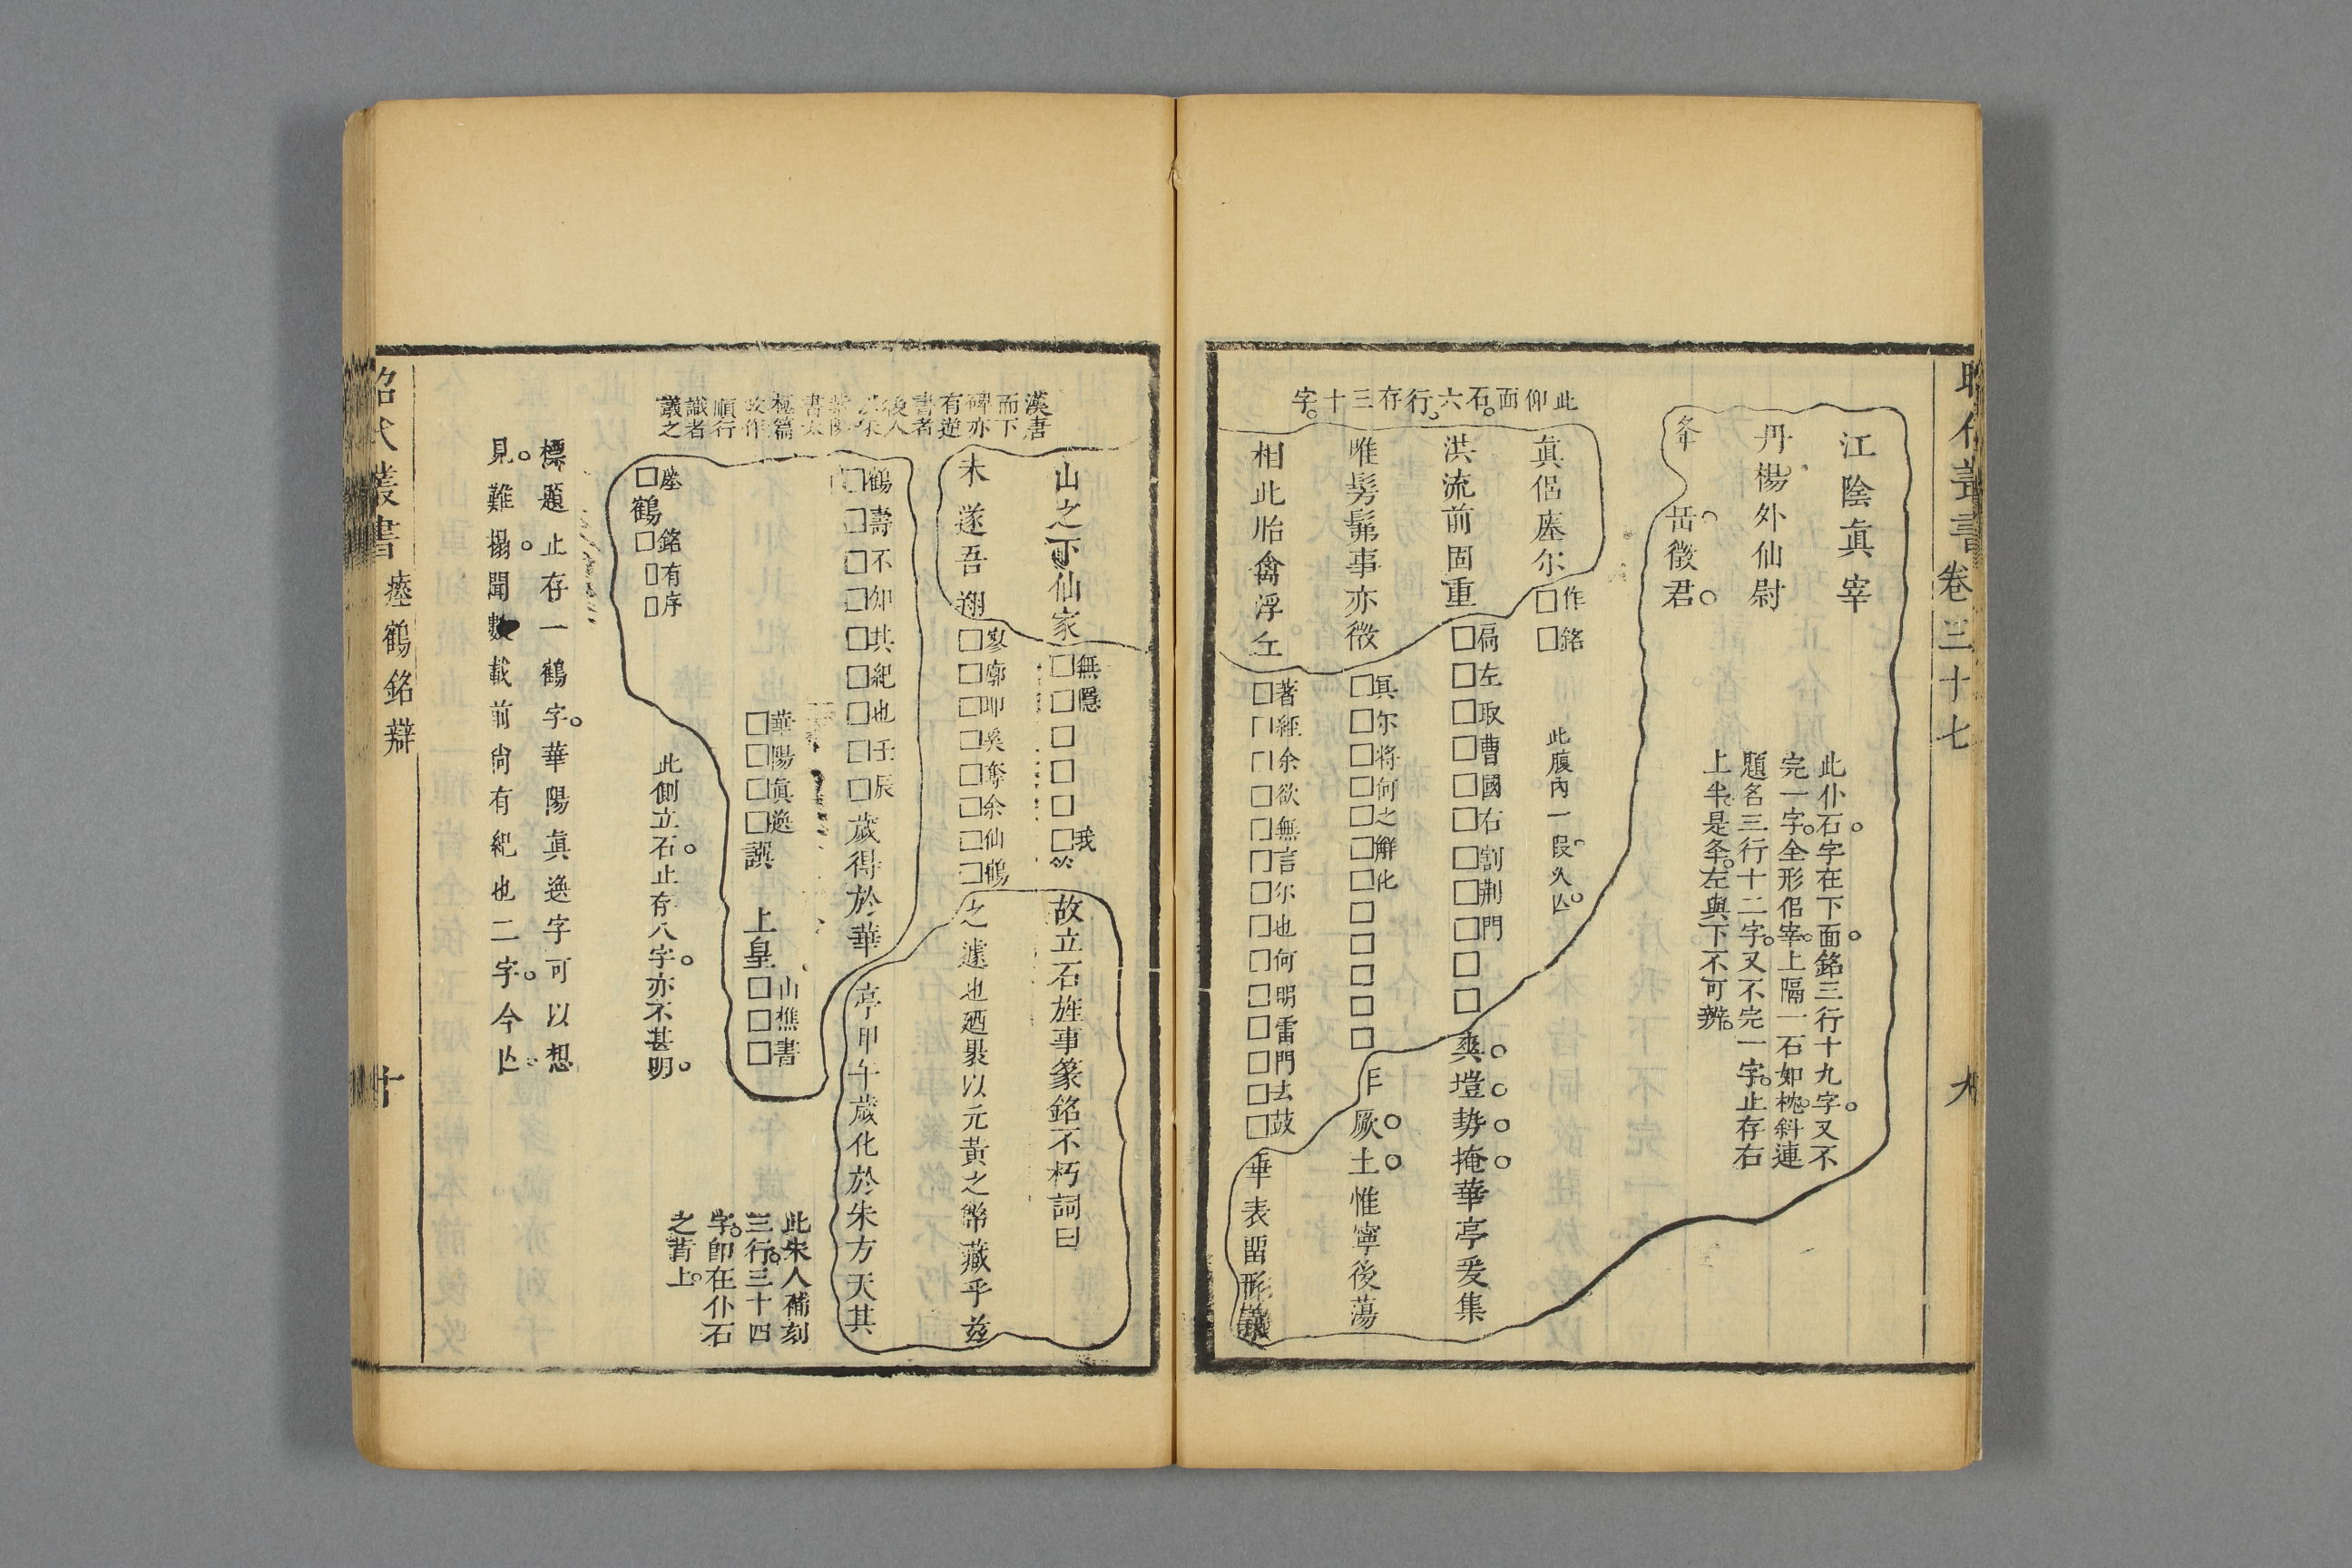 昭代叢書 卷三十七
江陰眞宰
此仆石字在下面銘三行十九字又不
完一字全形侶宰上隔一石如枕斜連
題名三行十二字又不完一字止存右
上半是夅左與下不可辨
丹楊外仙尉
夅 岳徵君
此仰面石六行存三十字
眞侶瘞尔□作□銘
此腹內一段久亾
洪流前固重□扃□左□取□曹□國□右□割□荆□門□□爽塏勢掩華亭爰集
唯髣髴事亦微□眞□尔□将□何□之□解□化□□□□□ 厥土惟寧後蕩
相此胎禽浮丘□著□經□余□欲□無□言□尔□也□何□明□雷□門□去□鼓 華表留形
漢唐
而下
碑亦
有逆
書者
後人
順行
識者
議之
山之下仙家□無□隱□□□□我 故立石旌事篆銘不朽詞曰
未遂吾翔□寥□廓□奚□奪□余□仙□鶴之遽也廼褁以元黃之幣藏乎茲
□鶴□壽□不□知□其□紀□也□壬□辰歲得於華亭甲午歲化於朱方天其
□華□陽□眞□逸譔 上皇□山□樵□書
此朱人補刻
三行三十四
字卽在仆石
之背上
□瘞鶴□銘□有□序
此側立石止存八字亦不甚明
標題止存一鶴字華陽眞逸字可以想
見難搨聞數載前尙有紀也二字今亾
昭代叢書 瘞鶴銘辯 十